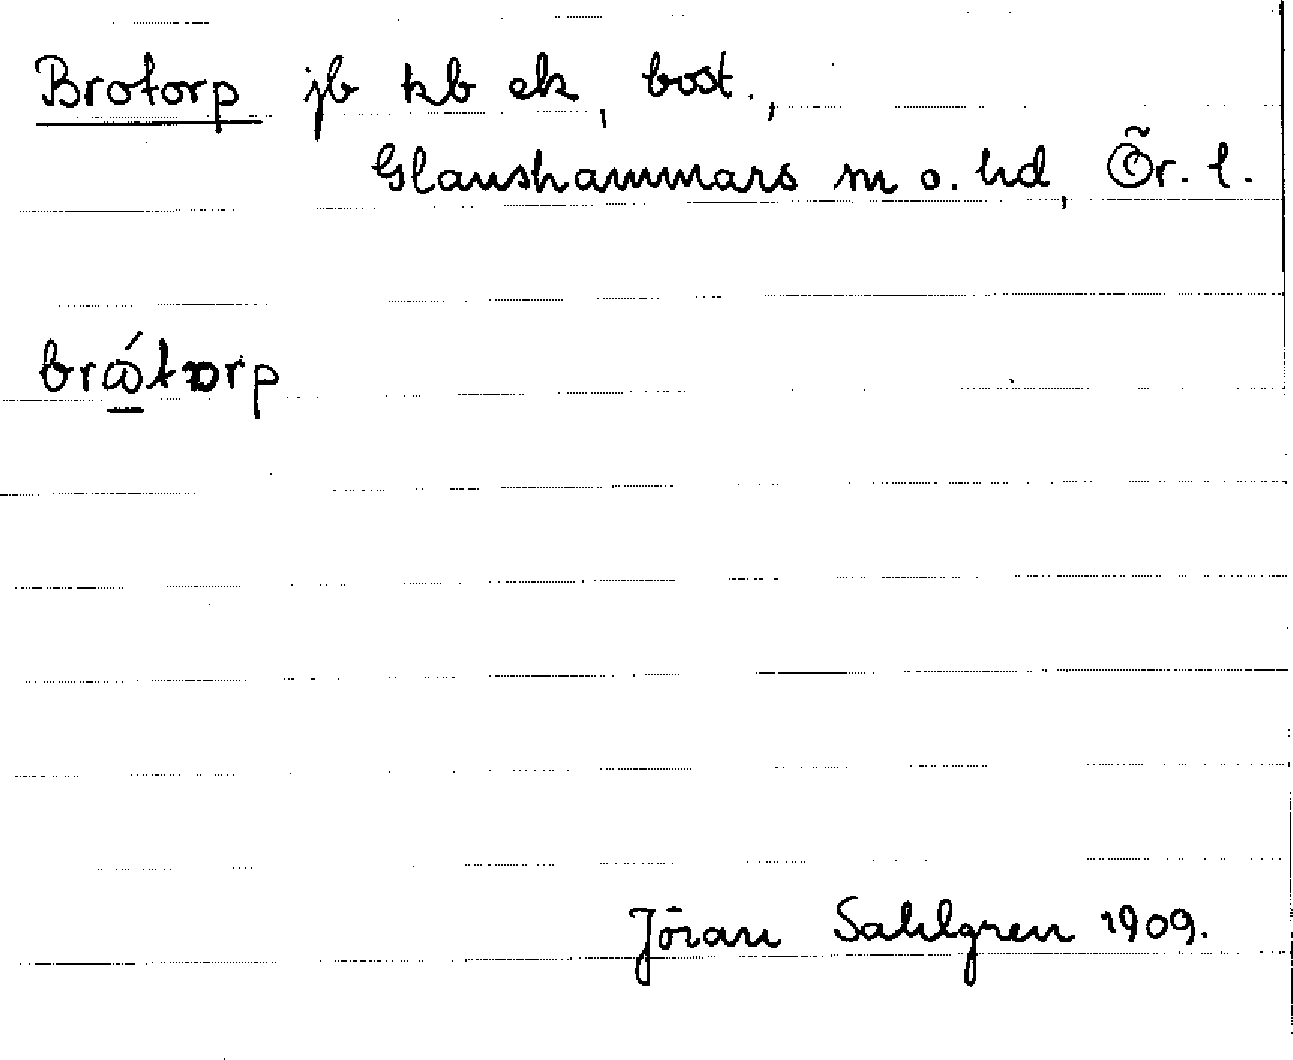 Brotorp jb kb ek, bost.,
Glanshammars sn o. hd, Ör. l.
brώtorp
Jöran Sahlgren 1909.